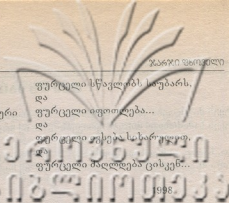 ჯარჯი ფხოველი
ფურცელი სწავლობს საუბარს,
და
ური ფურცელი იფოთლება...
და
ფურცელი
და
ფურცელი მაღლდება ცისკენ...
1998
ეროვნული
ბიბლიოთეკა